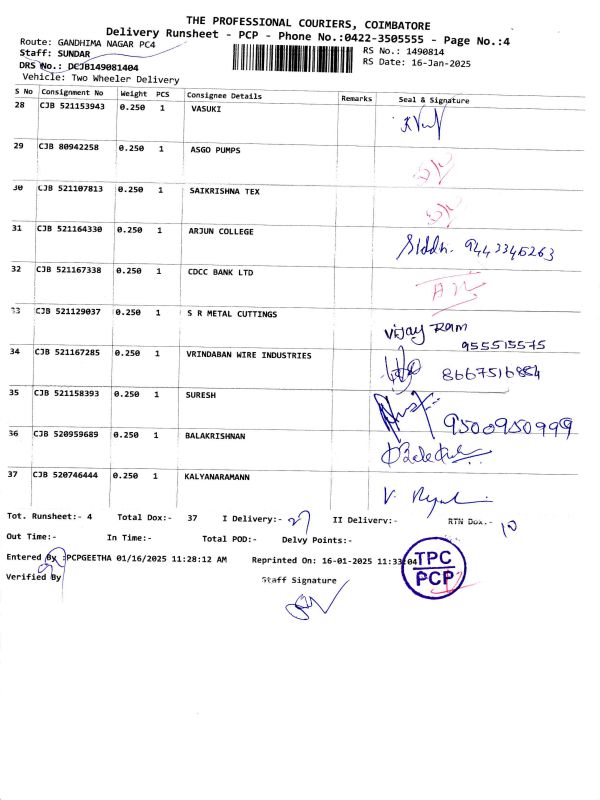 THE PROFESSIONAL COURIERS, COIMBATORE
Delivery Runsheet - PCP - Phone No.:0422-3505555 - Page No.:4
Route: GANDHIMA NAGAR PC4
RS No.: 1490814
Staff: SUNDAR
RS Date: 16-Jan-2025
DRS No.: DCJB149081404
Vehicle: Two Wheeler Delivery
S No Consignment No Weight PCS Consignee Details Remarks Seal & Signature
28 CJB 521153943 0.250 1 VASUKI
29 CJB 80942258 0.250 1 ASGO PUMPS
30 CJB 521107813 0.250 1 SAIKRISHNA TEX
31 CJB 521164330 0.250 1 ARJUN COLLEGE
9443345263
32 CJB 521167338 0.250 1 CDCC BANK LTD
33 CJB 521129037 0.250 1 S R METAL CUTTINGS
Vijay Ram
955515575
34 CJB 521167285 0.250 1 VRINDABAN WIRE INDUSTRIES
8667516884
35 CJB 521158393 0.250 1 SURESH
9500950999
36 CJB 520959689 0.250 1 BALAKRISHNAN
37 CJB 520746444 0.250 1 KALYANARAMANN
Tot. Runsheet:- 4 Total Dox:- 37 I Delivery:- 27 II Delivery:- RTN Dox.- 10
Out Time:- In Time:- Total POD:- Delvy Points:-
Entered By :PCPGEETHA 01/16/2025 11:28:12 AM Reprinted On: 16-01-2025 11:33:04
TPC
PCP
Verified By
Staff Signature